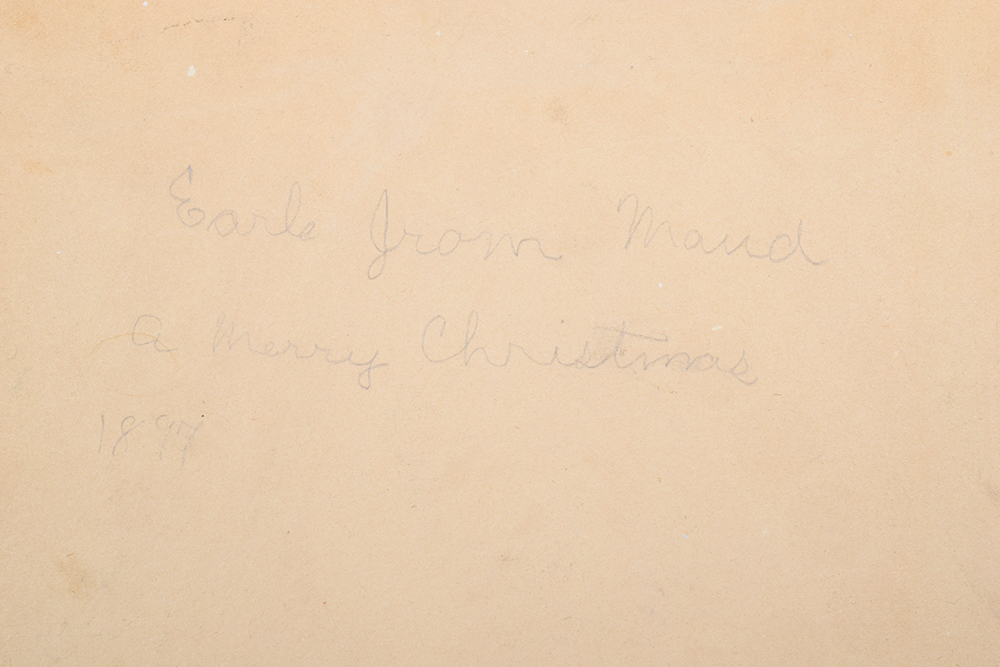 Earle from Maud
a Merry Christmas
1897